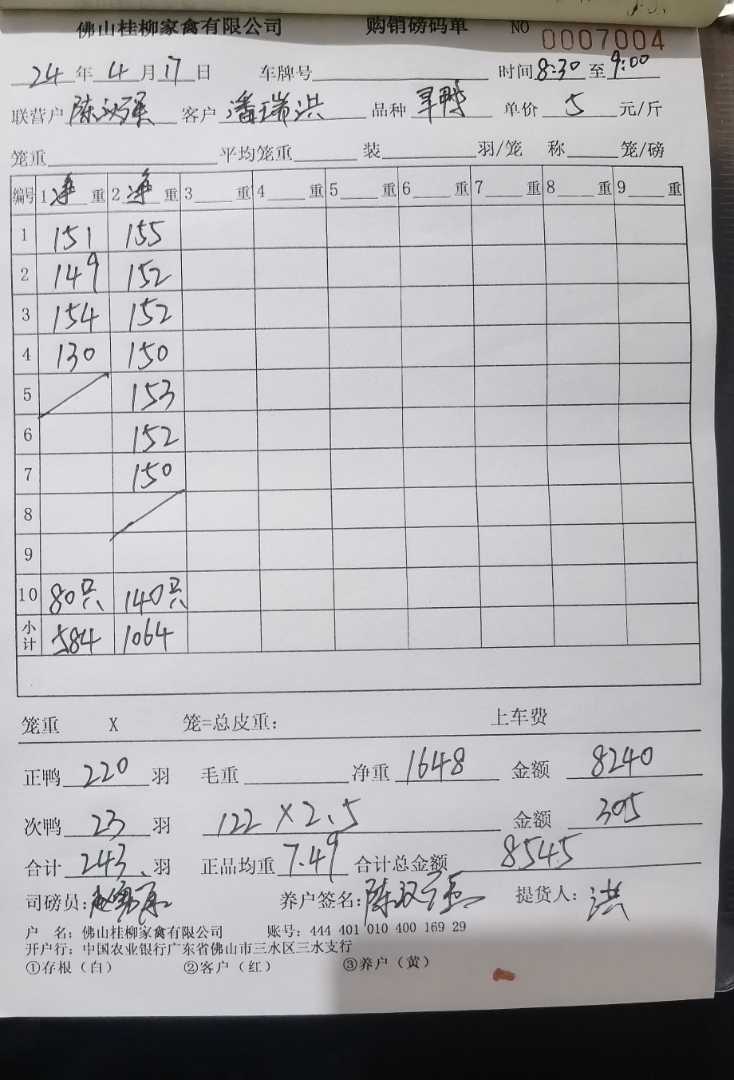 佛山桂柳家禽有限公司 购销磅码单 NO 0007004
24年4月17日 车牌号 时间8:30至9:00
联营户陈汉强 客户潘瑞洪 品种旱鸭 单价5元/斤
笼重 平均笼重 装 羽/笼 称 笼/磅
编号 1净重 2净重 3 重 4 重 5 重 6 重 7 重 8 重 9 重
1 151 155
2 149 152
3 154 152
4 130 150
5 153
6 152
7 150
8
9
10 80只 140只
小计 584 1064
笼重 X 笼=总皮重: 上车费
正鸭220羽 毛重 净重1648 金额8240
次鸭23羽 122×2.5 金额305
合计243羽 正品均重7.49 合计总金额8545
司磅员: 养户签名:陈汉强 提货人:洪
户 名:佛山桂柳家禽有限公司 账号:444 401 010 400 169 29
开户行:中国农业银行广东省佛山市三水区三水支行
①存根(白) ②客户(红) ③养户(黄)